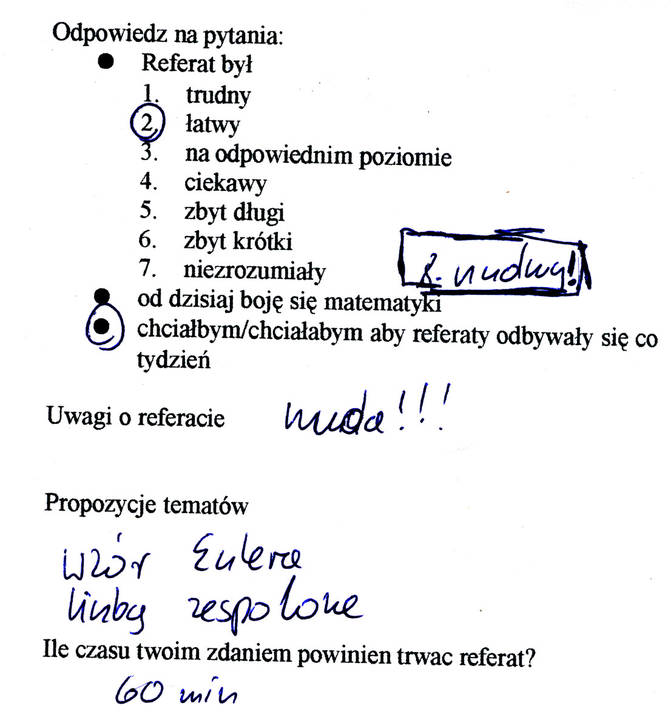 Odpowiedz na pytania:
● Referat był
1. trudny
2. łatwy
3. na odpowiednim poziomie
4. ciekawy
5. zbyt długi
6. zbyt krótki
7. niezrozumiały
8. nudny!
● od dzisiaj boję się matematyki
● chciałbym/chciałabym aby referaty odbywały się co
tydzień
Uwagi o referacie nuda!!!
Propozycje tematów
wzór Eulera
liczby zespolone
Ile czasu twoim zdaniem powinien trwac referat?
60 min